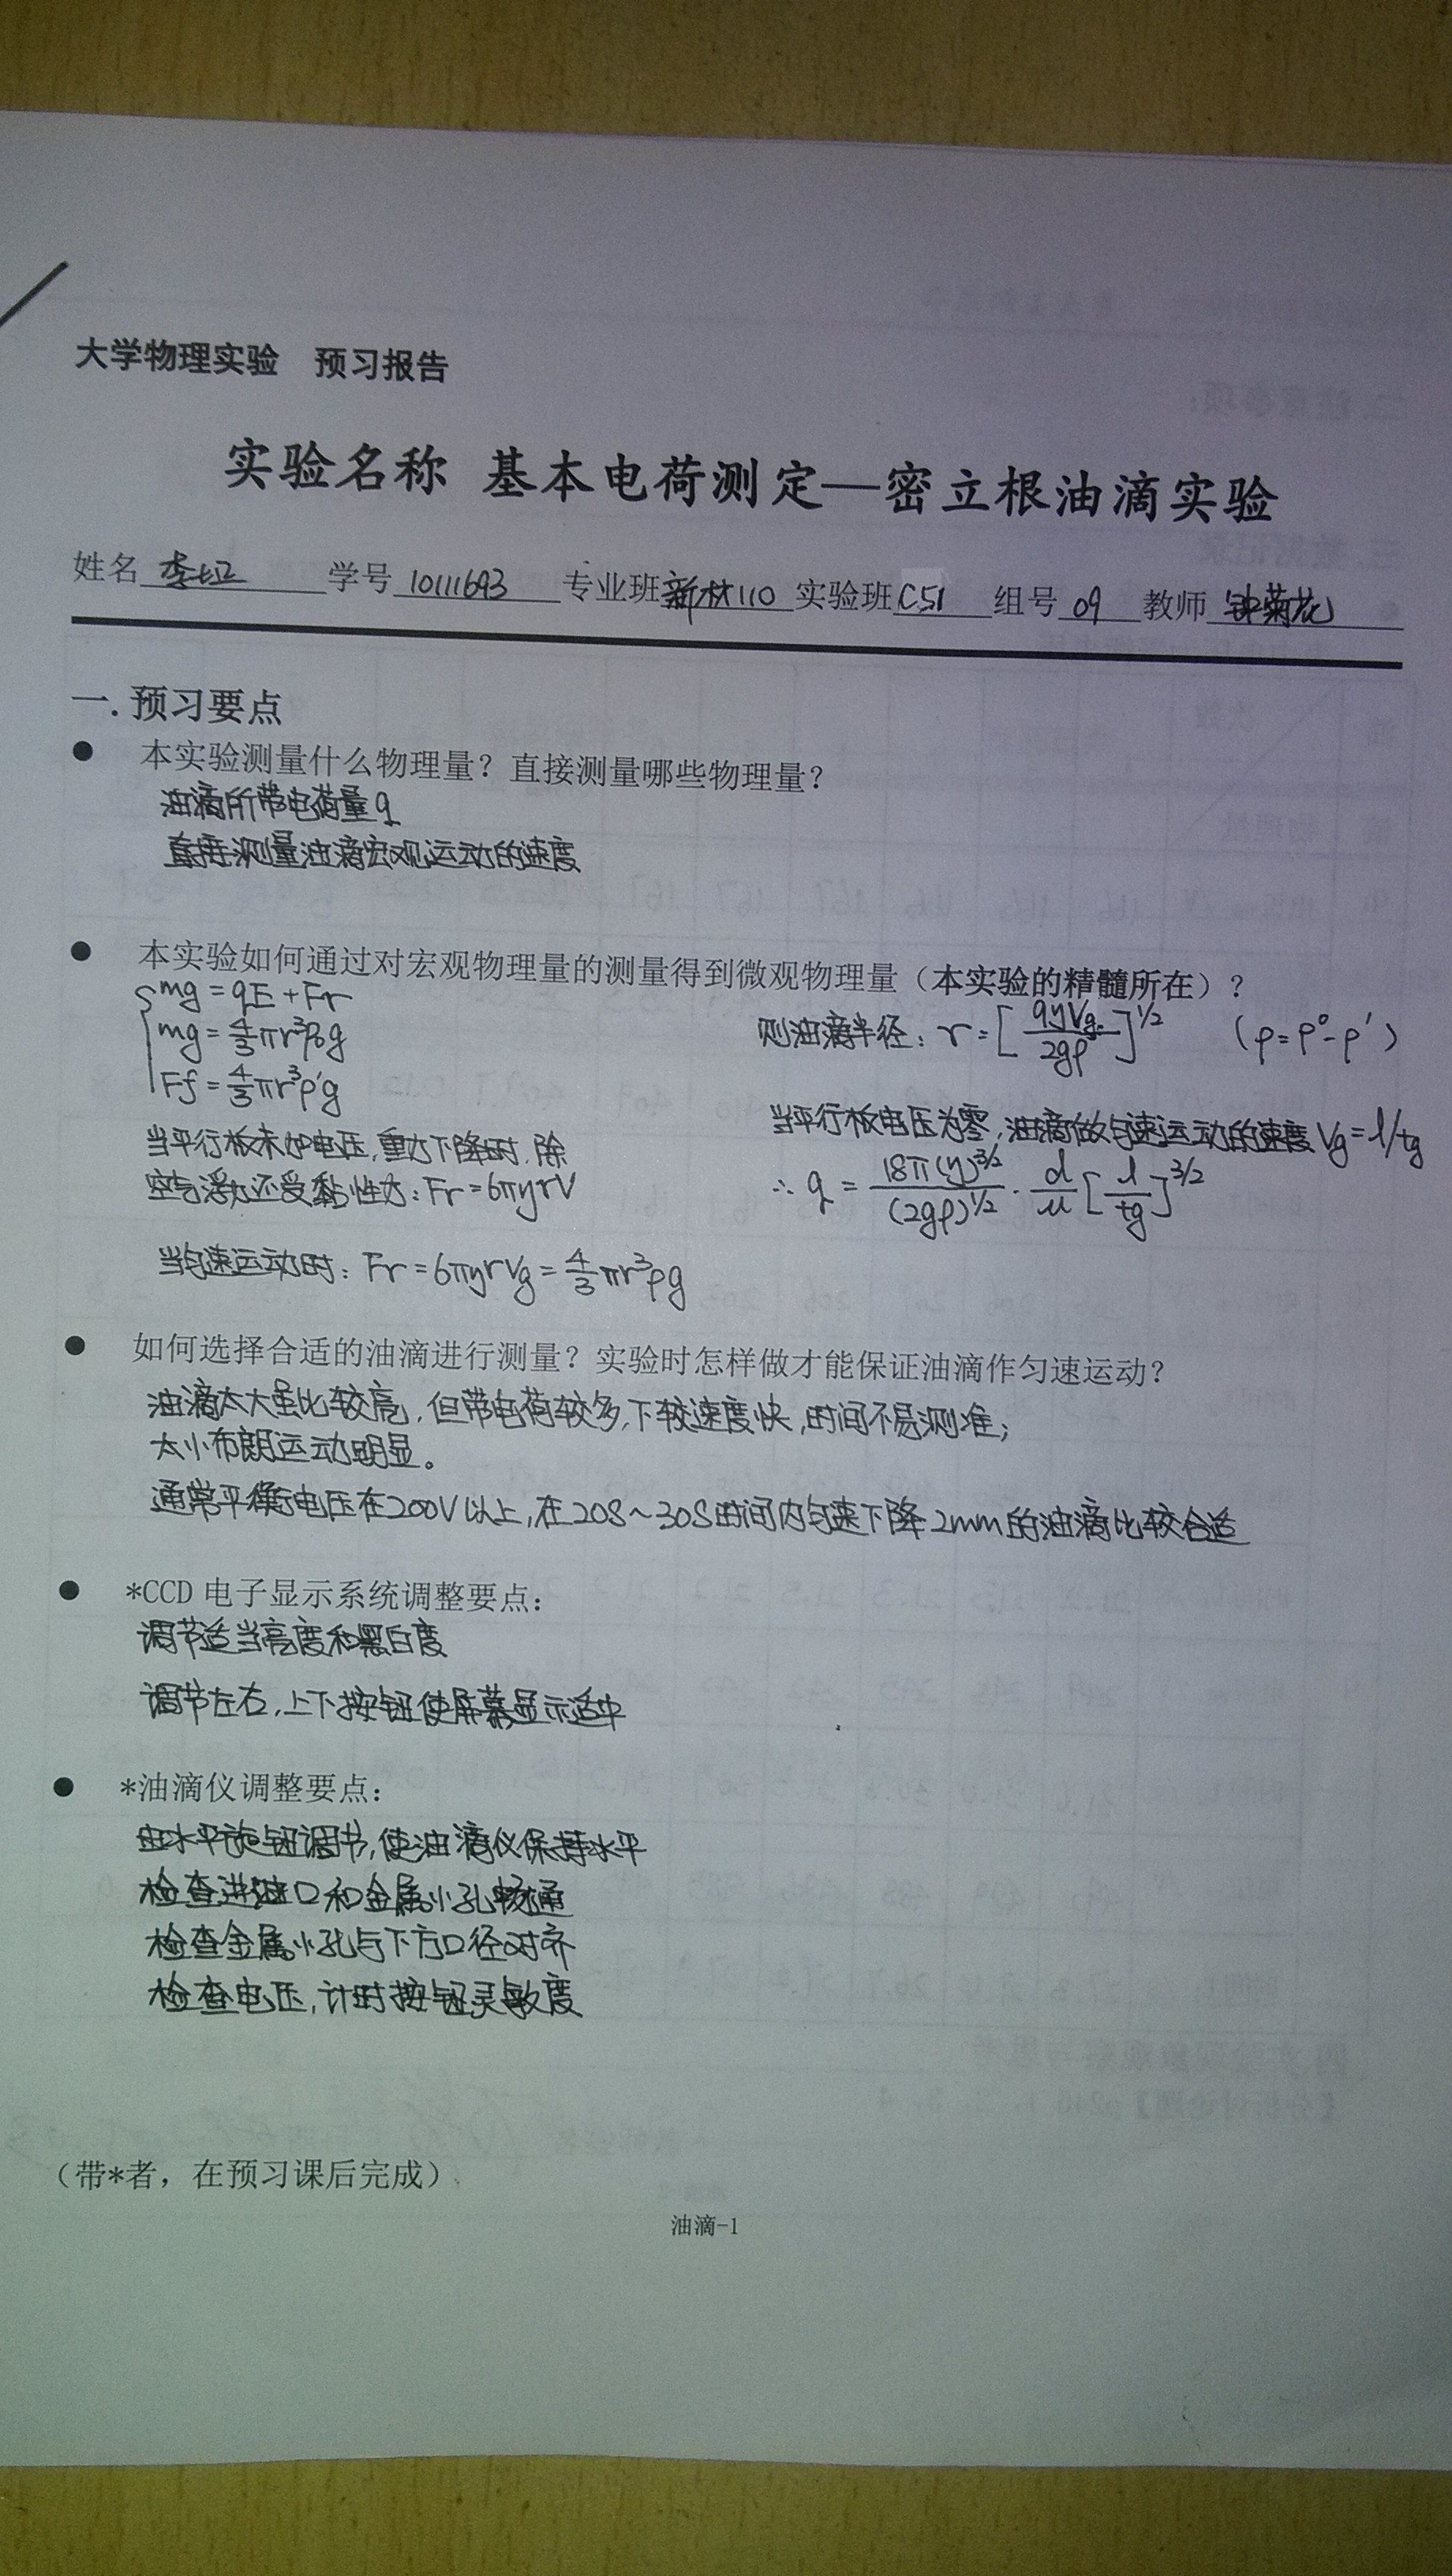 大学物理实验 预习报告
实验名称 基本电荷测定—密立根油滴实验
姓名 李 学号 10111693 专业班 新材110 实验班 C51 组号 09 教师 钟菊花
一. 预习要点
● 本实验测量什么物理量？直接测量哪些物理量？
油滴所带电荷量q
直接测量油滴宏观运动的速度
● 本实验如何通过对宏观物理量的测量得到微观物理量（本实验的精髓所在）？
mg = qE + Fr
mg = 4/3 πr³ρ₀g
Ff = 4/3 πr³ρ'g
当平行板未加电压，重力下降时，除
空气浮力还受黏性力：Fr = 6πηrV
当匀速运动时：Fr = 6πηrVg = 4/3 πr³ρg
则油滴半径：r = [9ηVg / 2gρ]^1/2 (ρ = ρ° - ρ')
当平行板电压为零，油滴做匀速运动的速度 Vg = l/tg
∴ q = 18π(η)^3/2 / (2gρ)^1/2 · d/u [l/tg]^3/2
● 如何选择合适的油滴进行测量？实验时怎样做才能保证油滴作匀速运动？
油滴太大虽比较亮，但带电荷较多，下较速度快，时间不易测准；
太小布朗运动明显。
通常平衡电压在200V以上，在20S~30S时间内匀速下降2mm的油滴比较合适
● *CCD 电子显示系统调整要点：
调节适当亮度和黑白度
调节左右，上下按钮使屏幕显示适中
● *油滴仪调整要点：
由水平旋钮调节，使油滴仪保持水平
检查进油口和金属小孔畅通
检查金属小孔与下方口径对齐
检查电压，计时按钮灵敏度
（带*者，在预习课后完成）
油滴-1